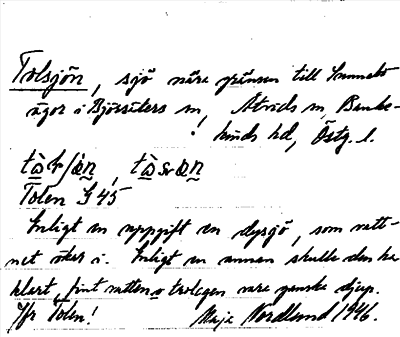 Tolsjön, sjö nära gränsen till
ägor i Björsäters sn, Åtvids sn, Banke-
kinds hd, Östg. l.
Tolen G 45
Enligt en uppgift en dysjö, som vatt-
net ökar i. Enligt en annan skulle den ha
klart, fint vatten o troligen vara ganska djup.
Jfr Tolen! Maja Nordlund 1946.